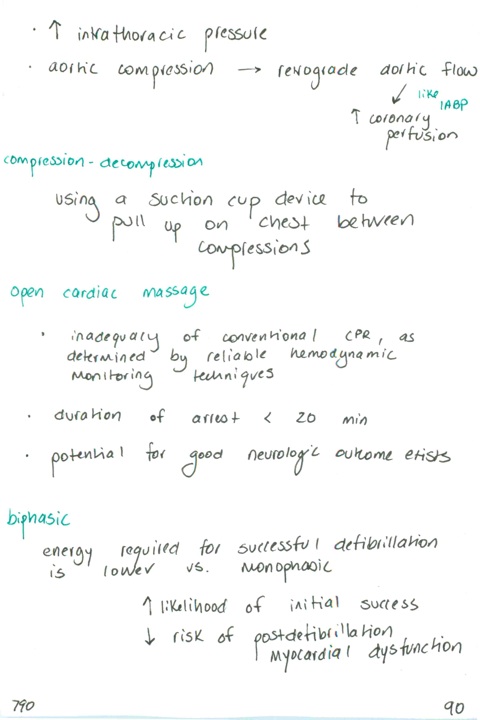 · ↑ intrathoracic pressure
· aortic compression → retrograde aortic flow
↙ like IABP
↑ coronary
perfusion
compression - decompression
using a suction cup device to
pull up on chest between
compressions
open cardiac massage
· inadequacy of conventional CPR, as
determined by reliable hemodynamic
monitoring techniques
· duration of arrest < 20 min
· potential for good neurologic outcome exists
biphasic
energy required for successful defibrillation
is lower vs. monophasic
↑ likelihood of initial success
↓ risk of postdefibrillation
myocardial dysfunction
790 90